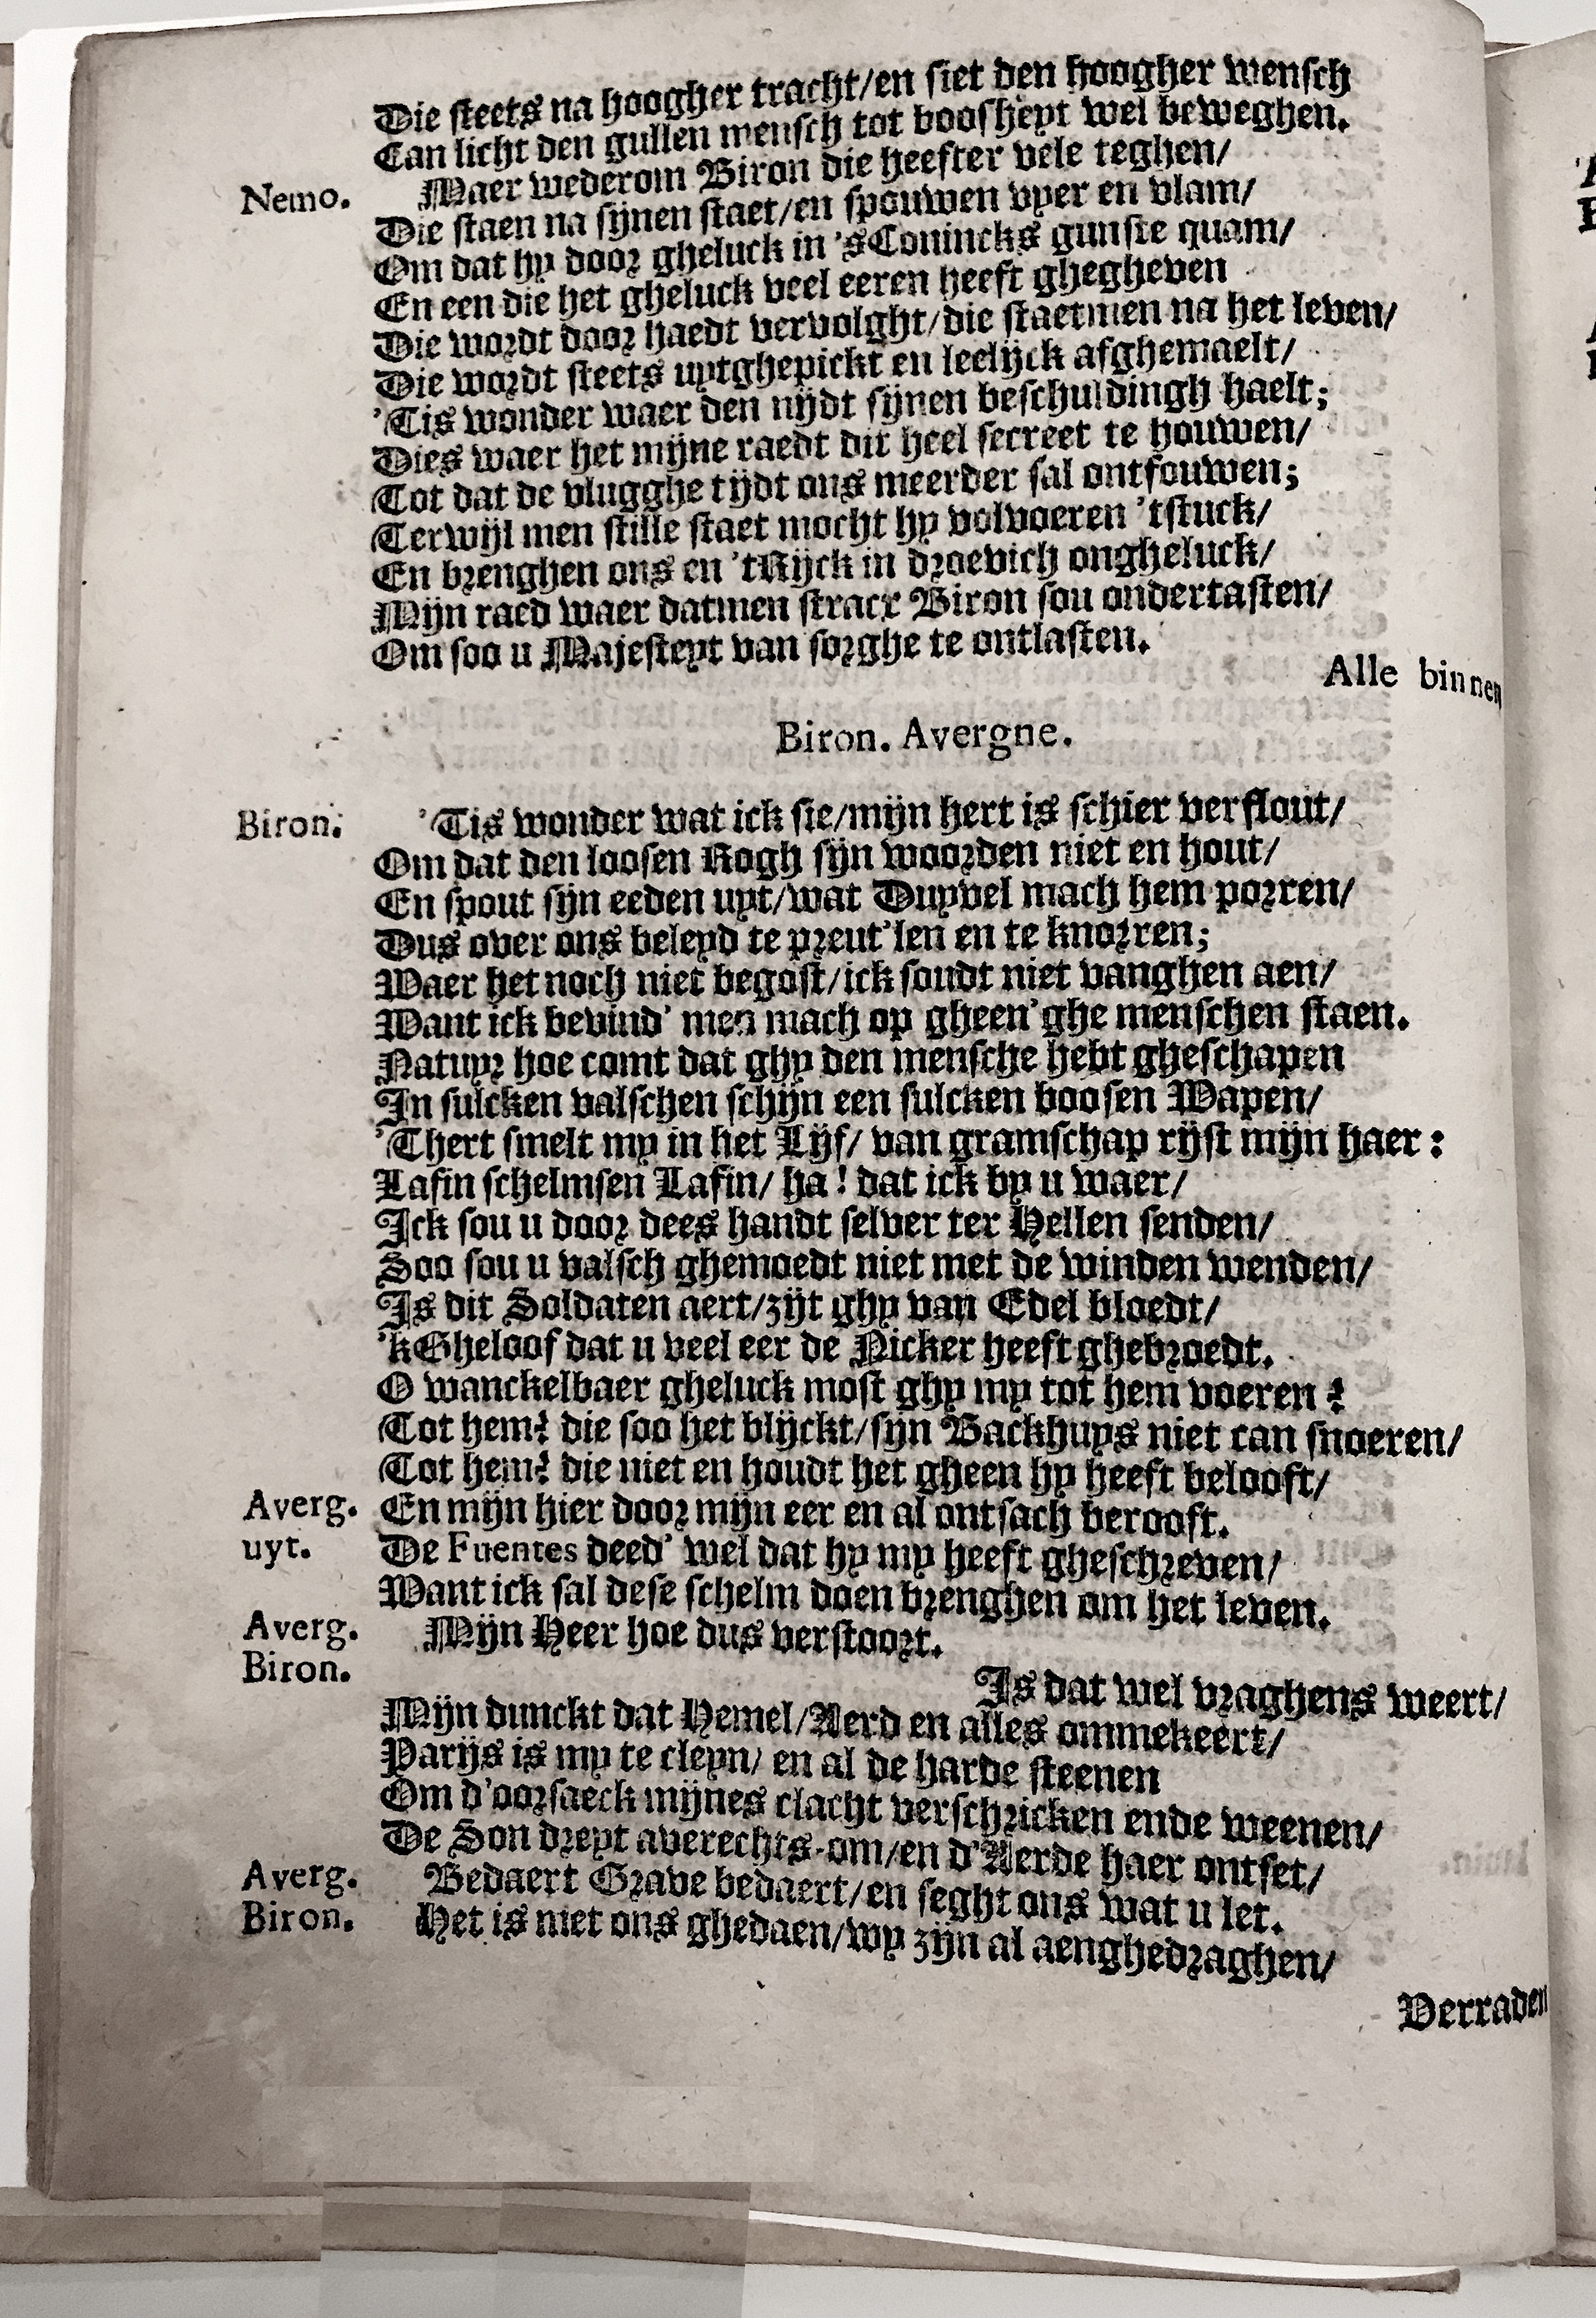 Die steets na hoogher tracht/en siet den hoogher wensch
Can licht den gullen mensch tot boosheyt wel beweghen.
Nemo. Maer wederom Biron die heefter vele teghen/
Die staen na sijnen staet/en spouwen vyer en vlam/
Om dat hy door gheluck in 'sConincks gunste quam/
En een die het gheluck veel eeren heeft ghegheven
Die wordt door haedt vervolght/die staetmen na het leven/
Die wordt steets uytghepickt en leelijck afghemaelt/
'Tis wonder waer den nijdt sijnen beschuldingh haelt;
Dies waer het mijne raedt dit heel secreet te houwen/
Tot dat de vlugghe tijdt ons meerder sal ontfouwen;
Terwijl men stille staet mocht hy volvoeren 'tstuck/
En brenghen ons en 'tRijck in droevich ongheluck/
Mijn raed waer datmen stracx Biron sou ondertasten/
Om soo u Majesteyt van sorghe te ontlasten.
Alle binnen
Biron. Avergne.
Biron. 'Tis wonder wat ick sie/mijn hert is schier verflout/
Om dat den loosen Rogh sijn woorden niet en hout/
En spout sijn eeden uyt/wat Duyvel mach hem porren/
Dus over ons beleyd te preut'len en te knorren;
Waer het noch niet begost/ick soudt niet vanghen aen/
Want ick bevind' men mach op gheen'ghe menschen staen.
Natuyr hoe comt dat ghy den mensche hebt gheschapen
In sulcken valschen schijn een sulcken boosen Wapen/
'Thert smelt my in het Lijf/ van gramschap rijst mijn haer:
Lafin schelmsen Lafin/ ha! dat ick by u waer/
Ick sou u door dees handt selver ter Hellen senden/
Soo sou u valsch ghemoedt niet met de winden wenden/
Is dit Soldaten aert/zijt ghy van Edel bloedt/
'kGheloof dat u veel eer de Nicker heeft ghebroedt.
O wanckelbaer gheluck most ghy my tot hem voeren?
Tot hem? die soo het blijckt/sijn Backhuys niet can snoeren/
Tot hem? die niet en houdt het gheen hy heeft belooft/
Averg. En mijn hier door mijn eer en al ontsach berooft.
uyt. De Fuentes deed' wel dat hy my heeft gheschreven/
Want ick sal dese schelm doen brenghen om het leven.
Averg. Mijn Heer hoe dus verstoort.
Biron. Is dat wel vraghens weert/
Mijn dunckt dat Hemel/Aerd en alles ommekeert/
Parijs is my te cleyn/ en al de harde steenen
Om d'oorsaeck mijnes clacht verschricken ende weenen/
De Son dreyt averechts-om/en d'Aerde haer ontset/
Averg. Bedaert Grave bedaert/en seght ons wat u let.
Biron. Het is met ons ghedaen/wy zijn al aenghedraghen/
Verraden